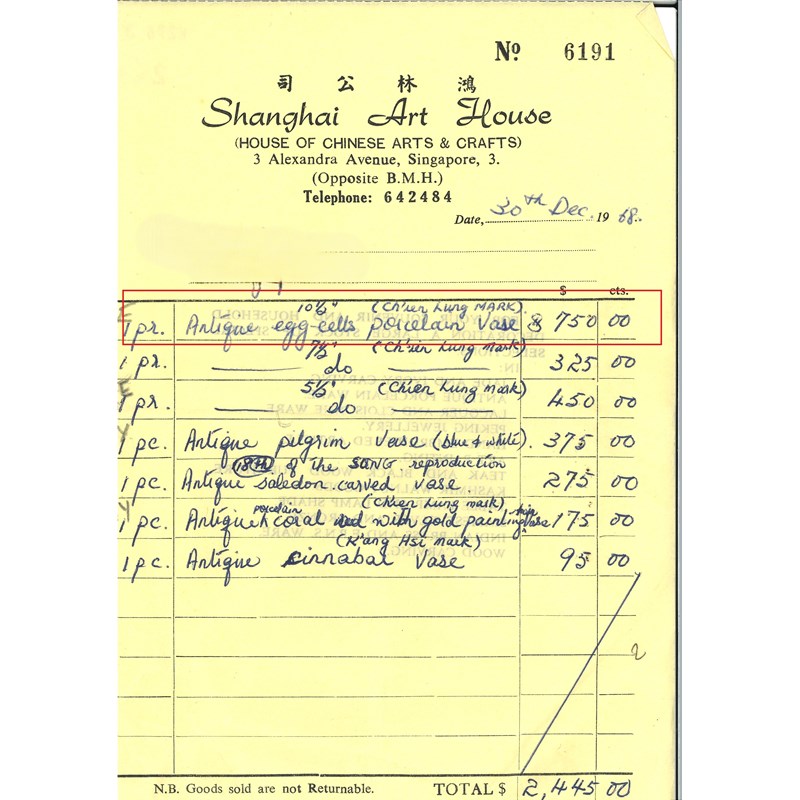 No 6191
司 公 林 鴻
Shanghai Art House
(HOUSE OF CHINESE ARTS & CRAFTS)
3 Alexandra Avenue, Singapore, 3.
(Opposite B.M.H.)
Telephone: 642484
Date, 30th Dec. 19 68.
$ cts.
10½" (Ch'ien Lung MARK).
1 pr. Antique egg-cells porcelain Vase $ 750 00
7½" (Ch'ien Lung Mark)
1 pr. do 325 00
5½" (Chien Lung mark)
1 pr. do 450 00
1 pc. Antique pilgrim Vase (blue & white). 375 00
18th of the SONG reproduction
1 pc. Antique saledon carved vase. 275 00
(Chien Lung mark)
1 pc. Antique porcelain coral red with gold painting Vase 175 00
(K'ang Hsi mark)
1 pc. Antique cinnabar Vase 95 00
N.B. Goods sold are not Returnable. TOTAL $ 2,445 00